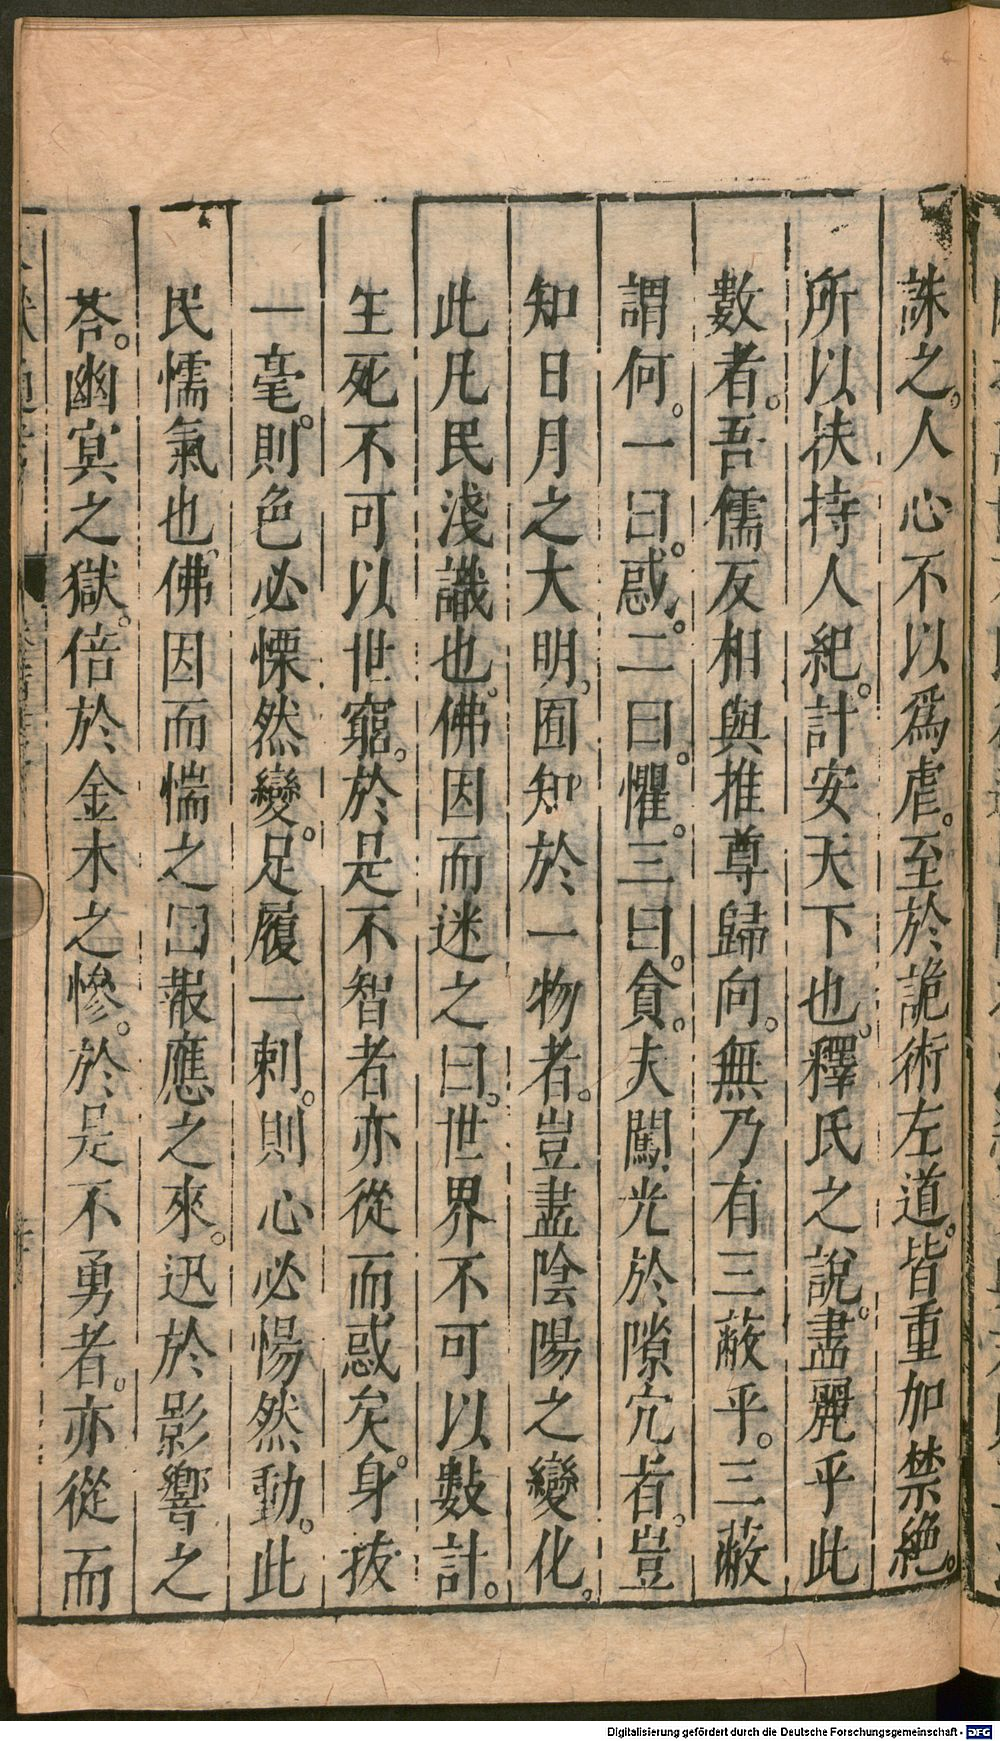 誅之。人心不以爲虐。至於詭術左道。皆重加禁絶。
所以扶持人紀。計安天下也。釋氏之說。盡麗乎此
數者。吾儒反相與推尊歸向。無乃有三蔽乎。三蔽
謂何。一曰。惑。二曰。懼。三曰。貪。夫闖光於隙穴者。豈
知日月之大明。囿知於一物者。豈盡陰陽之變化。
此凡民淺識也。佛因而迷之曰。世界不可以數計。
生死不可以世窮。於是不智者亦從而惑矣。身拔
一毫。則色必慄然變。足履一刺。則心必惕然動。此
民懦氣也。佛因而惴之曰報應之來。迅於影響之
荅。幽冥之獄。倍於金木之慘。於是不勇者。亦從而
Digitalisierung gefördert durch die Deutsche Forschungsgemeinschaft - DFG